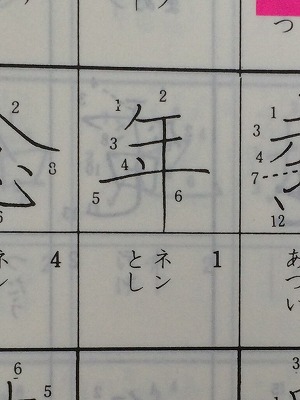 つ
年
1
2
3
4
5
6
ネン
とし
1
1
3
4
7
12
あつい
2
8
6
ネン
4
6
5
3